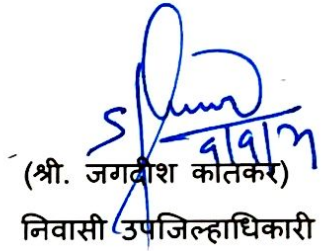 (श्री. जगदीश कातकर)
निवासी उपजिल्हाधिकारी